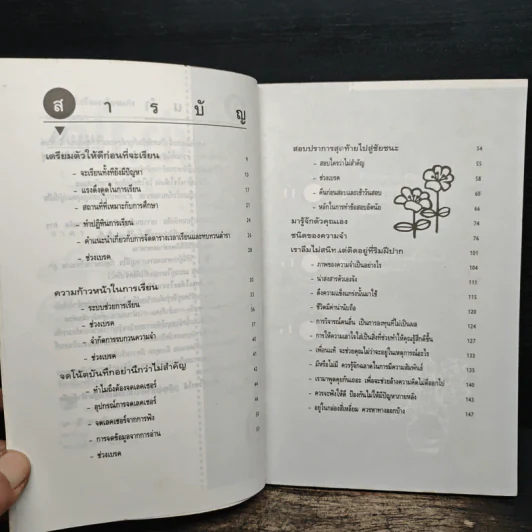 สารบัญ
เตรียมตัวให้ดีก่อนที่จะเรียน 9
- จะเรียนทั้งทียังมีปัญหา
- แรงดึงดูดในการเรียน 17
- สถานที่ที่เหมาะกับการศึกษา 21
- ทำปฏิทินการเรียน
- คำแนะนำเกี่ยวกับการจัดตารางเวลาเรียนและทบทวนตำรา
- ช่วงเบรค
ความก้าวหน้าในการเรียน
- ระบบช่วยการเรียน
- ช่วงเบรค
- จำกัดการรบกวนความจำ
- ช่วงเบรค
จดโน้ตบันทึกอย่านึกว่าไม่สำคัญ
- ทำไมถึงต้องจดเลคเชอร์
- อุปกรณ์การจดเลคเชอร์
- จดเลคเชอร์จากการฟัง
- การจดข้อมูลจากการอ่าน
- ช่วงเบรค
สอบปราการสุดท้ายไปสู่ชัยชนะ 54
- สอบใครว่าไม่สำคัญ 55
- ช่วงเบรค 58
- คืนก่อนสอบและเช้าวันสอบ 60
- หลักในการทำข้อสอบอัตนัย 68
มารู้จักตัวคุณเอง 74
ชนิดของความจำ 76
เราลืมไม่สนิท..แต่ติดอยู่ที่ริมฝีปาก 101
- ภาพของความจำเป็นอย่างไร 104
- น่าสงสารตัวเองจัง 111
- ดึงความแข็งแกร่งนั้นมาใช้ 115
- ชีวิตมีค่าน่านับถือ
- การวิจารณ์คนอื่น เป็นการลงทุนที่ไม่เป็นผล 124
- การให้ความเอาใจใส่เป็นสิ่งที่ช่วยทำให้คุณรู้สึกดีขึ้น 127
- เพื่อนแท้ จะช่วยคุณไม่ว่าจะอยู่ในเหตุการณ์อะไร 130
- มีหรือไม่มี ควรรู้จักฉลาดในการมีความสัมพันธ์ 134
- เรามาพูดคุยกันเถอะ เพื่อจะช่วยล้างความคิดไม่ดีออกไป 140
- ควรจะฟังให้ดี ป้องกันไม่ให้มีปัญหาภายหลัง 143
- อยู่ในกล่องสี่เหลี่ยม ควรหาทางออกบ้าง 147